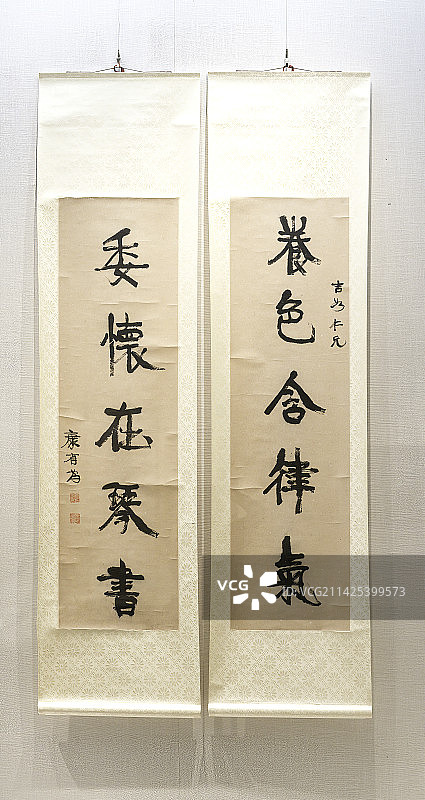 吉甫仁兄
養色含律氣
委懷在琴書
康有為
VCG
ID:VCG211425399573